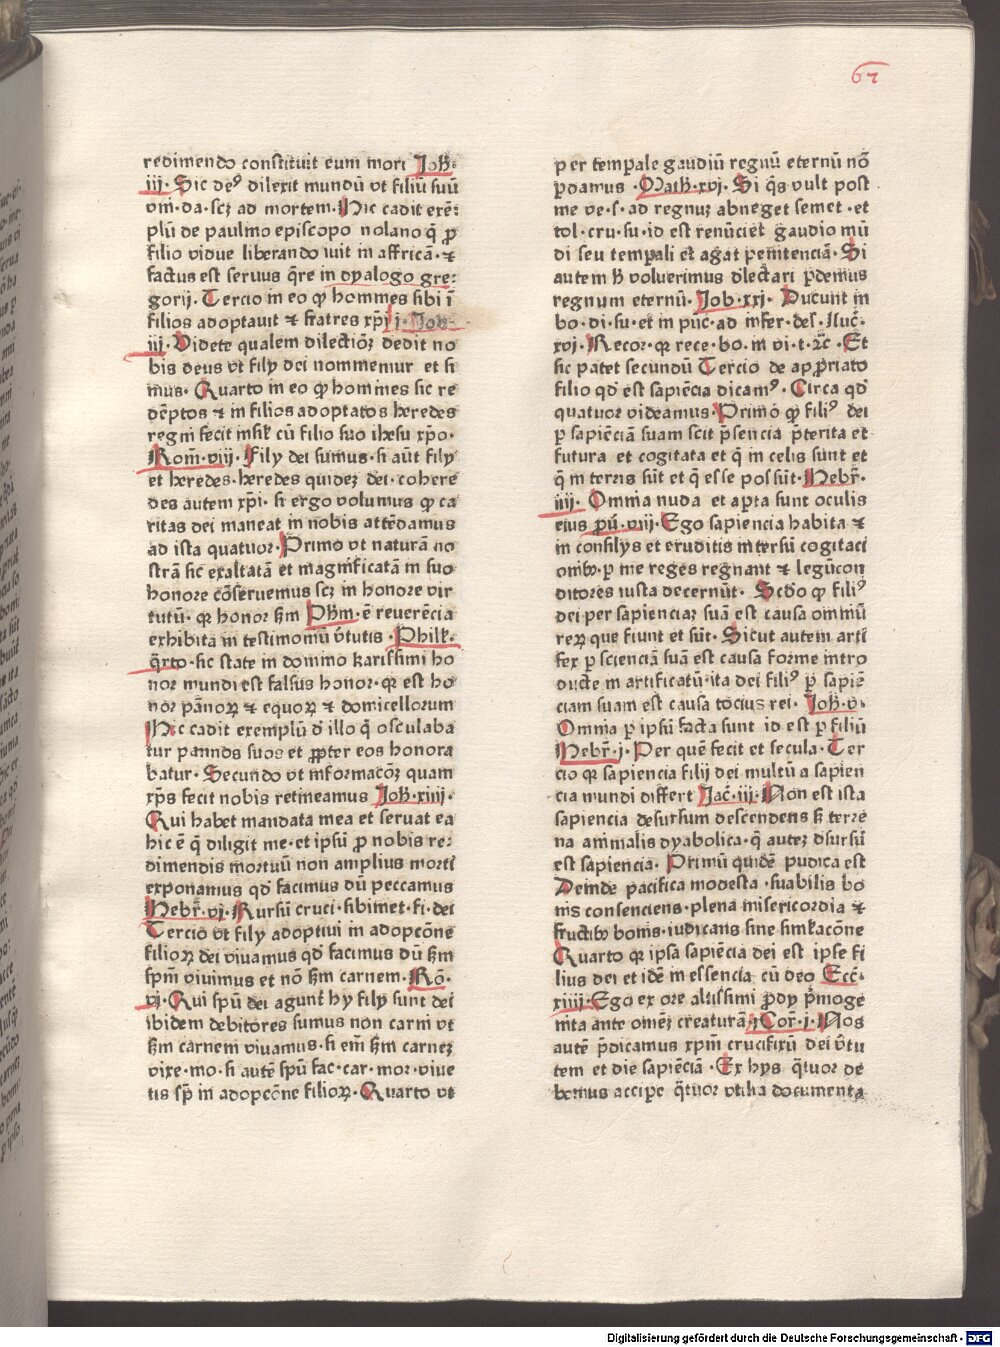 67
redimendo constituit eum mori Joh̄·
iij· Sic de⁹ dilexit mundū vt filiū suū
vm̄·da·scꝫ ad mortem·Hic cadit exē⸗
plū de paulino episcopo nolano q̄ ꝓ
filio vidue liberando iuit in affricā·⁊
factus est seruus q̄re in dyalogo gre⸗
gorij·Tercio in eo ꝙ homines sibi ī
filios adoptauit ⁊ fratres xp̄i j·Joh·
iij·Videte qualem dilectiōꝫ dedit no
bis deus vt fily dei nominemur et si
mus·Quarto in eo ꝙ homines sic re
dēptos ⁊ in filios adoptatos heredes
regni fecit insil̄ cū filio suo ihesu xp̄o·
Rom̄·viij·Fily dei sumus·si aūt fily
et heredes·heredes quideꝫ dei·cohere
des autem xp̄i·si ergo volumus ꝙ ca
ritas dei maneat in nobis attēdamus
ad ista quatuor·Primo vt naturā no
strā sic exaltatā et magnificatā in suo
honore cōseruemus scꝫ in honore vir
tutū·qꝛ honor scd̄m Ph̄m·ē reuerēcia
exhibita in testimoniū v̄tutis·Philip̄·
q̄rto·sic state in domino karissimi ho
nor mundi est falsus honor·qꝛ est ho
nor pānoꝝ ⁊ equoꝝ ⁊ domicellorum
Hic cadit exemplū d̄ illo q̄ osculaba
tur pannos suos et ꝓpter eos honora
batur·Secundo vt informacōꝫ quam
xp̄s fecit nobis retineamus Joh̄·xiiij·
Qui habet mandata mea et seruat ea
hic ē q̄ diligit me·et ipsū ꝓ nobis re⸗
dimendis mortuū non amplius morti
exponamus qd̄ facimus dū peccamus
Hebr̄·vj·Rursū cruci·sibimet·fi·dei
Tercio vt fily adoptiui in adopcōne
filioꝝ dei viuamus qd̄ facimus dū scd̄m
spm̄ viuimus et nō scd̄m carnem·Rō·
vj·Qui spū dei agunt hy fily sunt dei
ibidem debitores sumus non carni vt
scd̄m carnem viuamus·si em̄ scd̄m carneꝫ
vixe·mo·si autē spū fac·car·mor·viue
tis sp̄ in adopcōne filioꝝ·Quarto vt
per temꝑale gaudiū regnū eternū nō
ꝑdamus·Math̄·xvj·Si q̄s vult post
me ve·s·ad regnuꝫ abneget semet·et
tol·cru·su·id est renūciet gaudio mū
di seu temꝑali et agat penitenciā·Si
autem h̄ voluerimus dlectari ꝑdemus
regnum eternū·Job·xxj·Ducunt in
bo·di·su·et in pūc·ad infer·des·Luc̄·
xvj·Recor·qꝛ rece·bo·in vi·t·⁊c̄·Et
sic patet secundū Tercio de apꝓpriato
filio qd̄ est sapiēcia dicam⁹·Circa qd̄
quatuor videamus·Primo ꝙ fili⁹ dei
ꝑ sapiēciā suam scit p̄sencia p̄terita et
futura et cogitata et q̄ in celis sunt et
q̄ in terris sūt et q̄ esse possūt·Hebr̄·
iiij·Omnia nuda et aꝑta sunt oculis
eius pū·viij·Ego sapiencia habita ⁊
in consilys et eruditis intersū cogitaci
oniƀꝫ·ꝑ me reges regnant ⁊ legūcon
ditores iusta decernūt·Scd̄o ꝙ fili⁹
dei per sapienciaꝫ suā est causa omniū
reꝝ que fiunt et sūt·Sicut autem arti
fex ꝑ scienciā suā est causa forme intro
ducte in artificatū·ita dei fili⁹ ꝑ sapiē
ciam suam est causa tocius rei·Joh̄·v·
Omnia ꝑ ipsū facta sunt id est ꝑ filiū
Hebr̄·j·Per quē fecit et secula·Ter
cio qꝛ sapiencia filij dei multū a sapien
cia mundi differt Jac̄·iij·Non est ista
sapiencia desursum descendens sꝫ terre
na animalis dyabolica·q̄ auteꝫ dsursū
est sapiencia·Primū quidē pudica est
Deinde pacifica modesta·suabilis bo
nis consenciens·plena misericordia ⁊
fructibꝫ bonis·iudicans sine simlacōne
Quarto qꝛ ipsa sapiēcia dei est ipse fi
lius dei et idē in essencia cū deo Ecc̄·
xiiij·Ego ex ore altissimi ꝓdy p̄moge
nita ante omēꝫ creaturā·jCor̄·j·Nos
autē p̄dicamus xpm̄ crucifixū dei v̄tu
tem et die sapienciā·Ex hys q̄tuor de
bemus accipe q̄tuor vtilia documenta
Digitalisierung gefördert durch die Deutsche Forschungsgemeinschaft - DFG